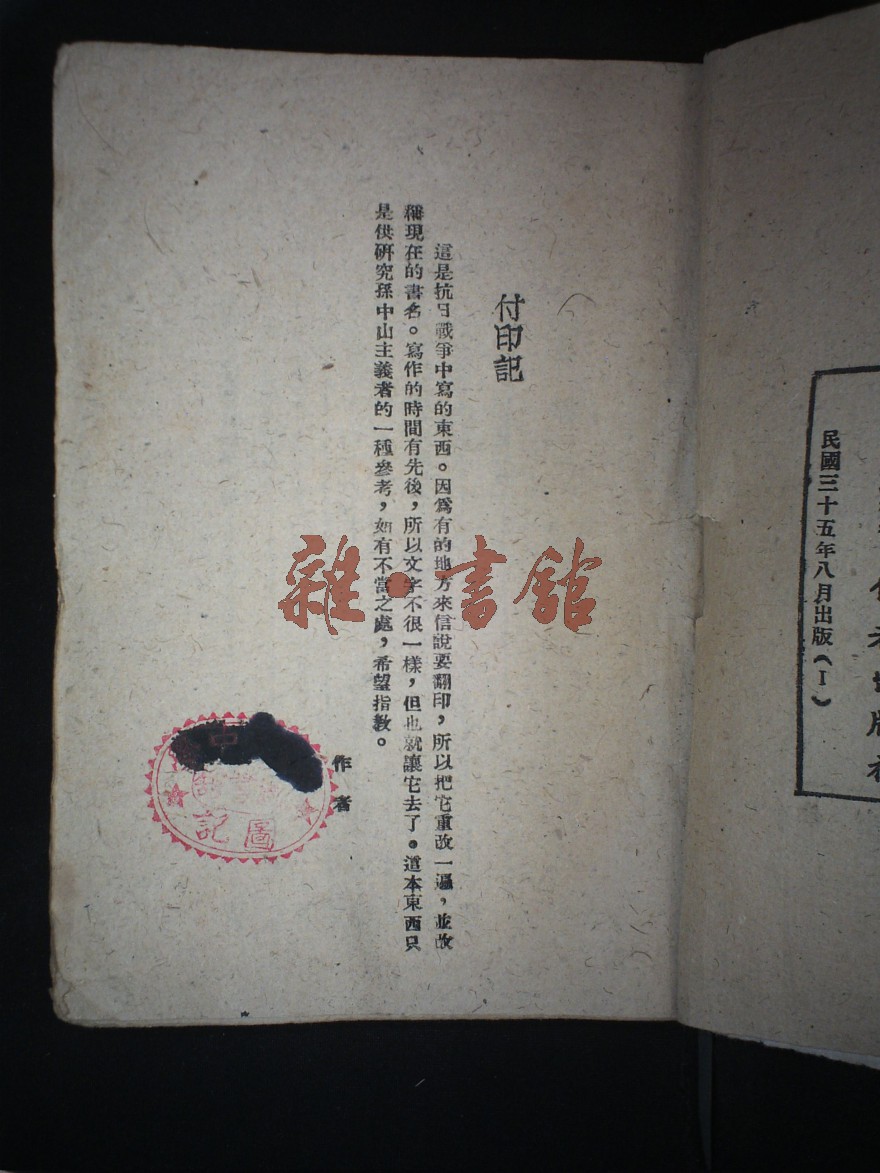 民國三十五年八月出版（I）
付印記
這是抗日戰爭中寫的東西。因爲有的地方來信說要翻印，所以把它重改一遍，並改
稱現在的書名。寫作的時間有先後，所以文字不很一樣，但也就讓它去了。這本東西只
是供研究孫中山主義者的一種參考，如有不當之處，希望指敎。
作者
中
圖記
雜·書館